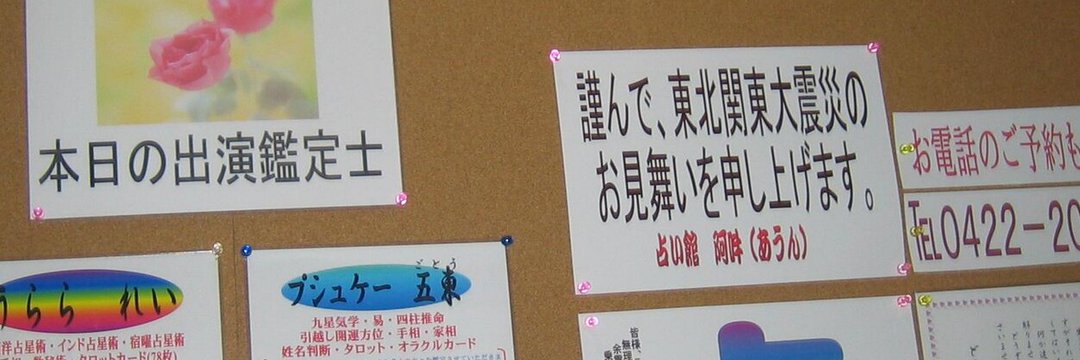 本日の出演鑑定士
謹んで、東北関東大震災の
お見舞いを申し上げます。
占い館 阿吽(あうん)
お電話のご予約も
TEL0422-20
うらら れい
洋占星術・インド占星術・宿曜占星術
タロットカード(78枚)
ごとう
プシュケー 五東
九星気学・易・四柱推命
引越し関連方位・手相・家相
姓名判断・タロット・オラクルカード
皆様、